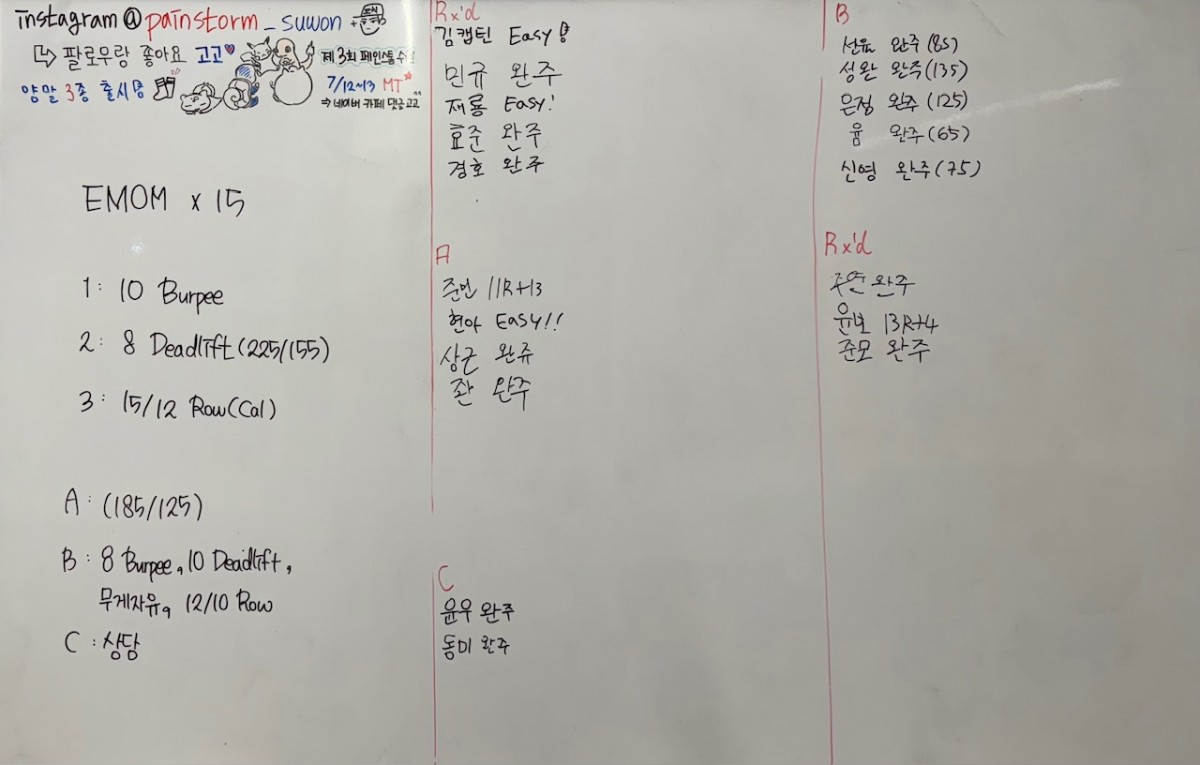 instagram@painstorm_suwon
↳ 팔로우랑 좋아요 고고♥
양말 3종 출시
제 3회 페인스톰 수원
7/12~13 MT
⇒ 네이버 카페 댓글 고고
EMOM x 15
1: 10 Burpee
2: 8 Deadlift (225/155)
3: 15/12 Row(Cal)
A: (185/125)
B: 8 Burpee, 10 Deadlift,
무게자유, 12/10 Row
C: 상담
Rx'd
김캡틴 Easy!
민규 완주
재룡 Easy!
효준 완주
경호 완주
A
준민 11R+13
현아 Easy!!
상근 완쥬
좐 완주
C
윤우 완주
동미 완주
B
선유 완주(85)
성완 완주(135)
은정 완주(125)
윰 완주(65)
신영 완주(75)
Rx'd
주연 완주
윤보 13R+4
준모 완주